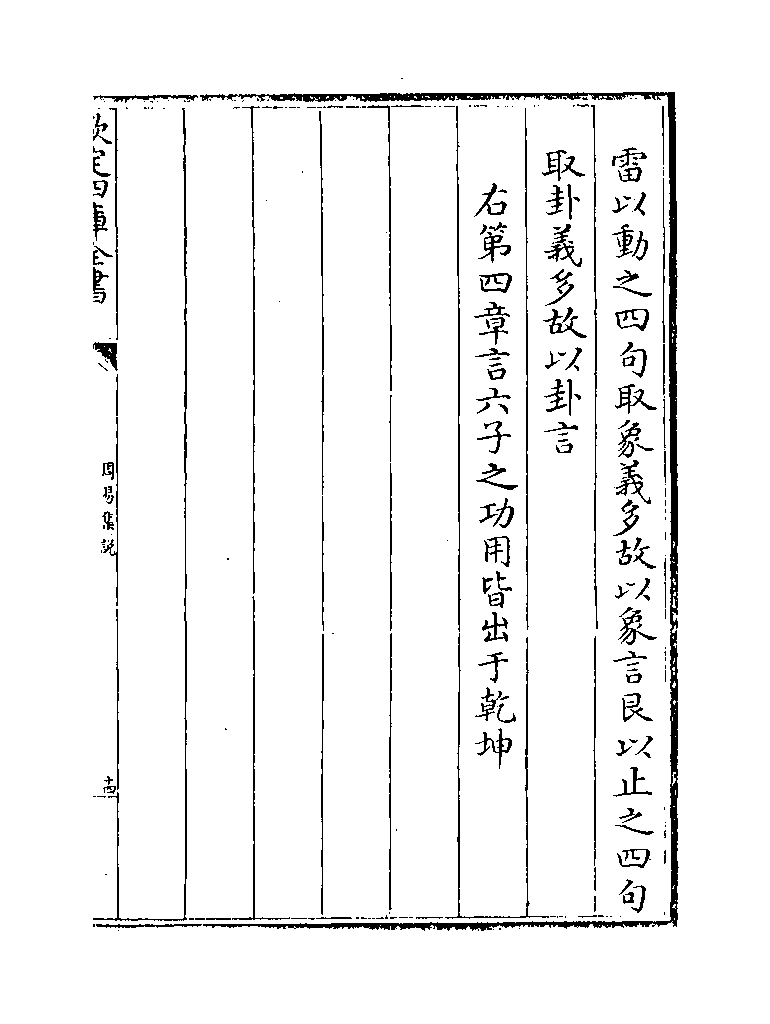 雷以動之四句取象義多故以象言艮以止之四句
取卦義多故以卦言
右第四章言六子之功用皆出于乾坤
欽定四庫全書
周易集説
十四